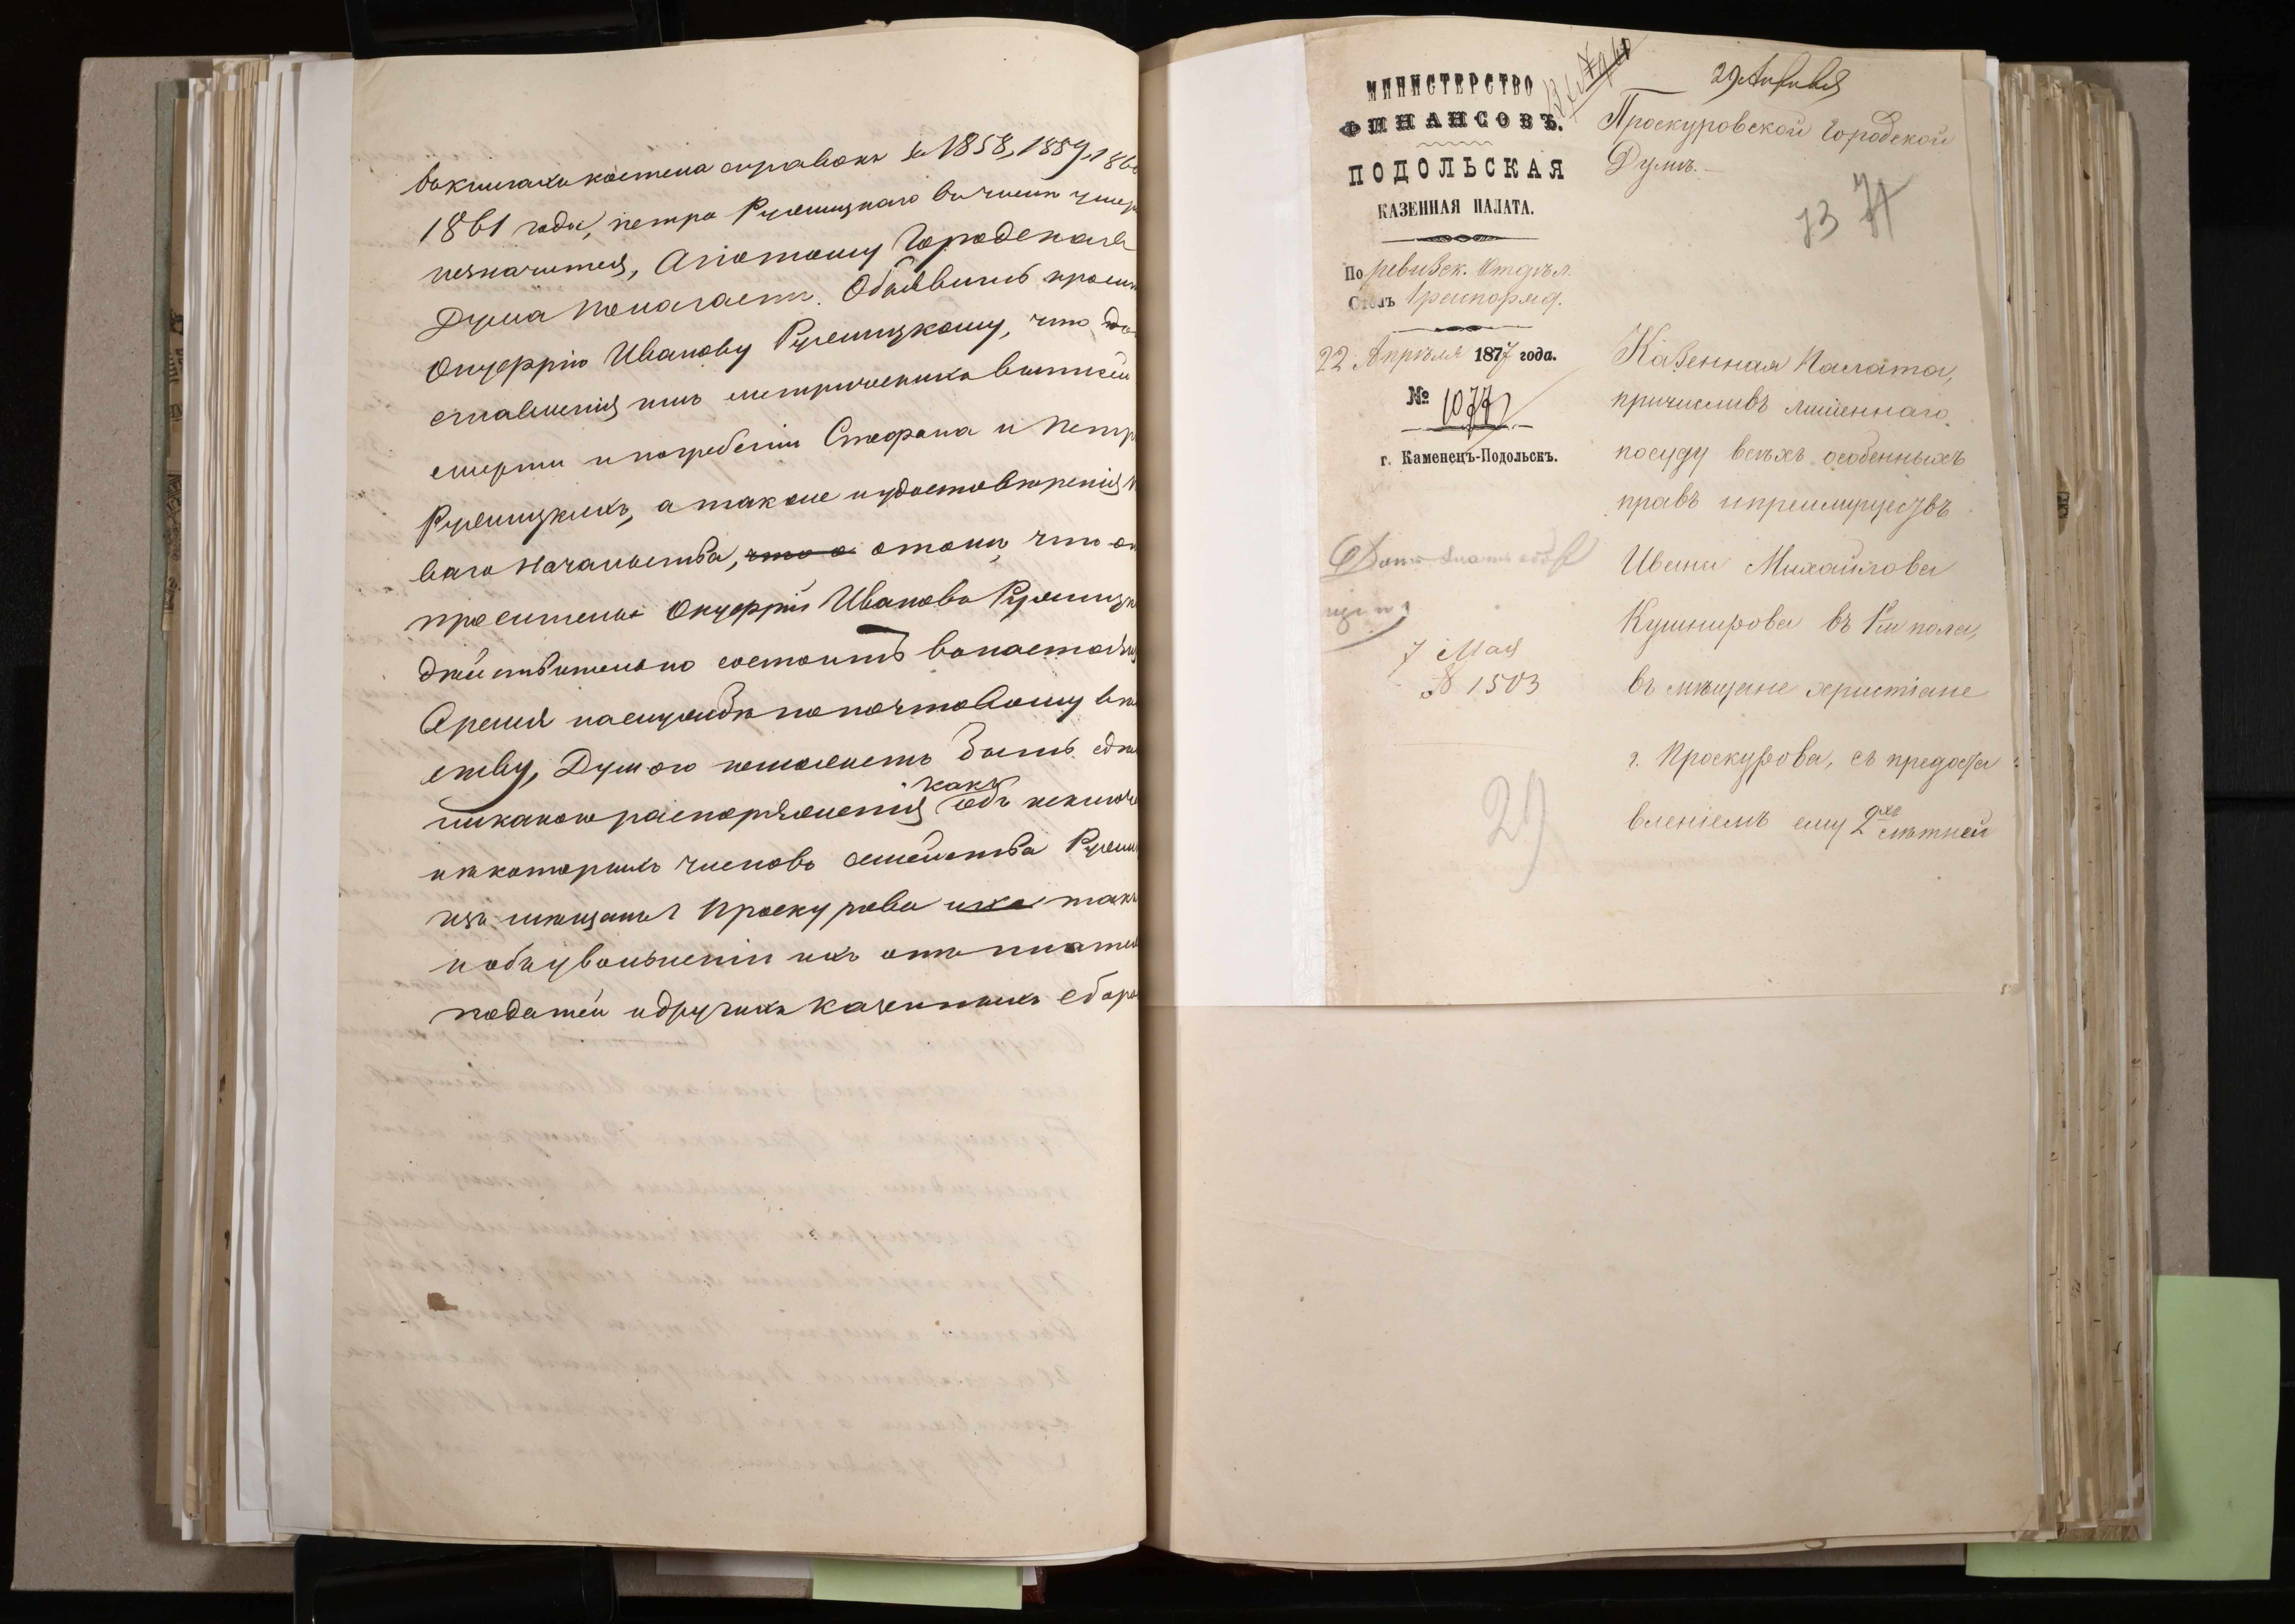 въ книгахъ костела справокъ за 1858, 1859, 186
1861 годы, петра Ружицкаго въ числѣ умер
незначится, Апотому Городская
Дума Полагаетъ. Объявить просит
Онуфрію Иванову Ружицкому, что до
ставленія имъ метрическихъ выписей
смерти и погребеніи Стефана и Петр
Ружицкихъ, а также и удостовѣренія
ваго Начальства, что о отомъ, что он
проситель Онуфрій Ивановъ Ружицк
дѣйствительно состоитъ внастоящ
время наслужбѣ попочтовому вѣд
ству, Думою неможетъ быть сдѣл
никакого распоряженія какъ объ исключ
нѣкоторыхъ членовъ семейства Ружи
изъ мѣщанъ г Проскурова ихъ такъ
и объ увольненіи ихъ отъ платеж
податей и другихъ казенныхъ сборо
МИНИСТЕРСТВО
ФИНАНСОВЪ.
ПОДОЛЬСКАЯ
КАЗЕННАЯ ПАЛАТА.
По ревизск. Отдѣл.
Столъ 1 распоряд.
22 Апрѣля 1877 года.
№ 1077
г. Каменецъ-Подольскъ.
7 Мая
№ 1503
29
29 Апрѣля
Проскуровской Городской
Думѣ.
73 74
Казенная Палата,
причисливъ лишеннаго
посуду всѣхъ особенныхъ
правъ ипреимуществъ
Ивана Михайлова
Кушнирова въ 1 м пола,
въ мѣщане христіане
г. Проскурова, съ предоста
вленіемъ ему 2хъ лѣтней